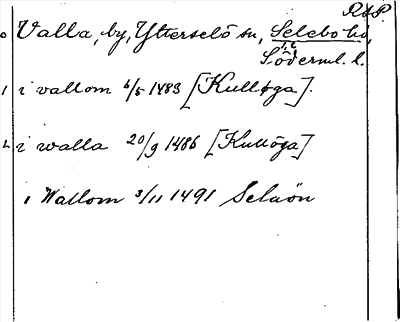 R A P.
0 Valla, by, Ytterselö sn, Selebo hd,
Söderml. l.
1 i vallom 6/5 1483 [Kulløga].
2 i walla 20/9 1486 [Kullöga]
i Wallom 3/11 1491 Selaön